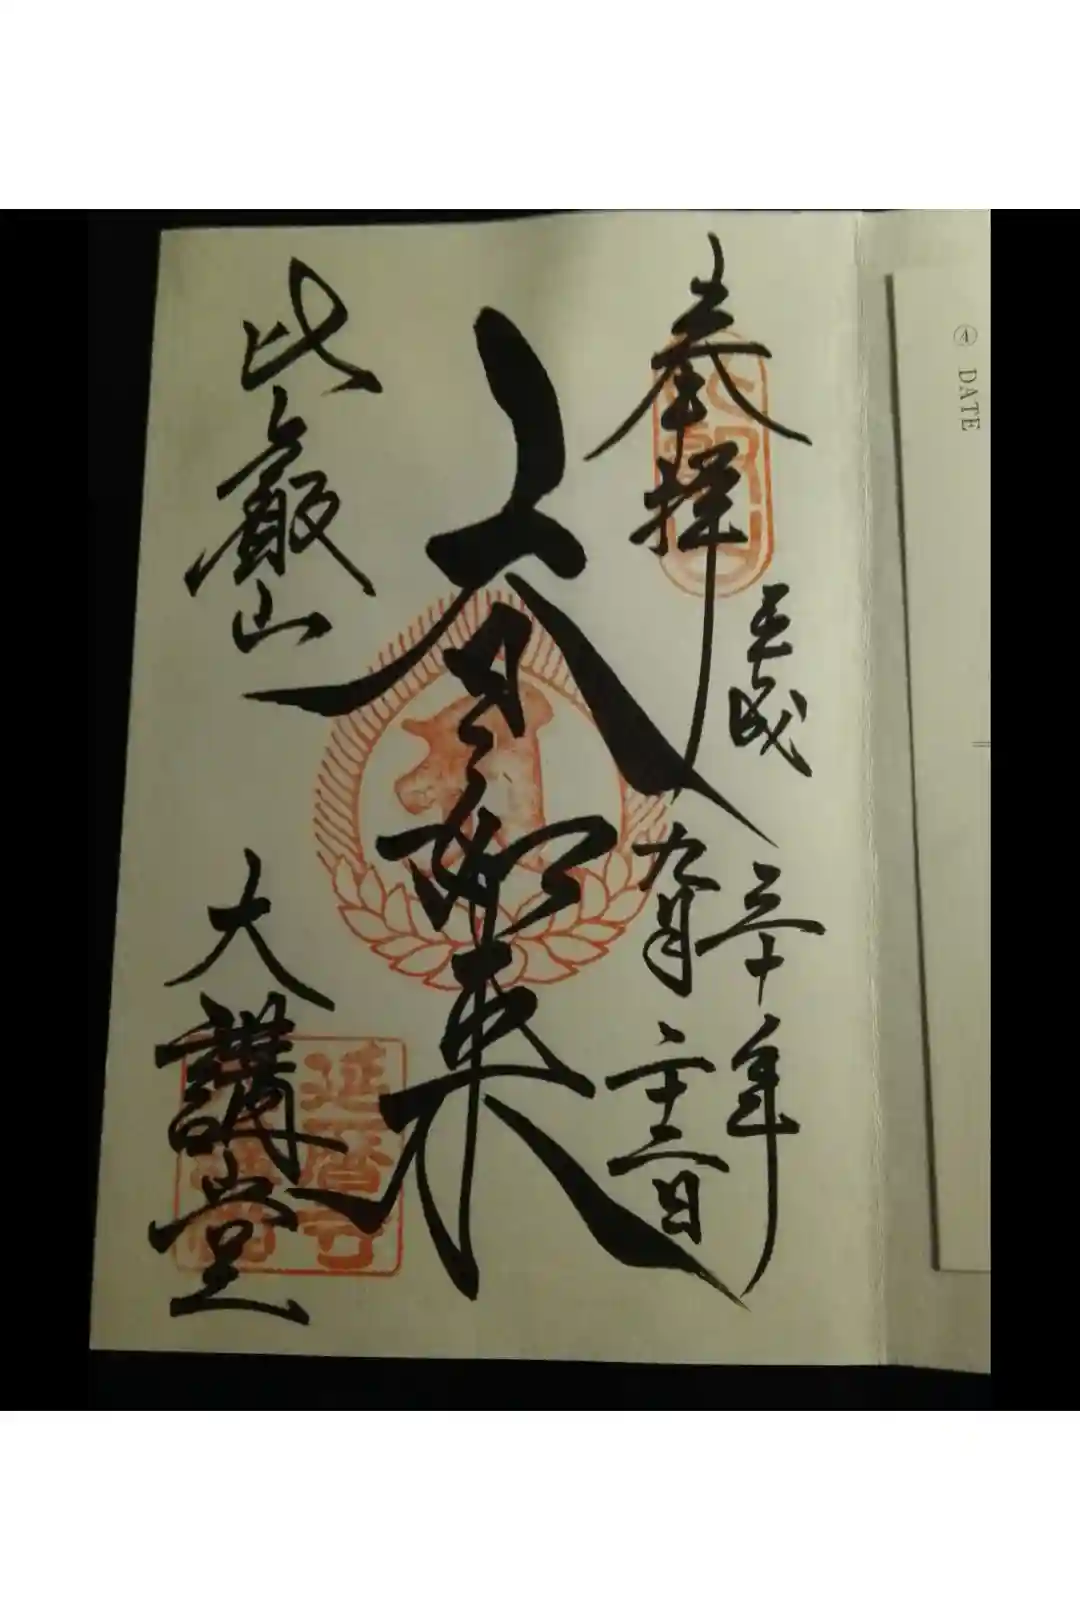 奉拝
平成三十年
九月二十二日
大日如来
比叡山
大講堂
延暦寺
Ⓐ DATE